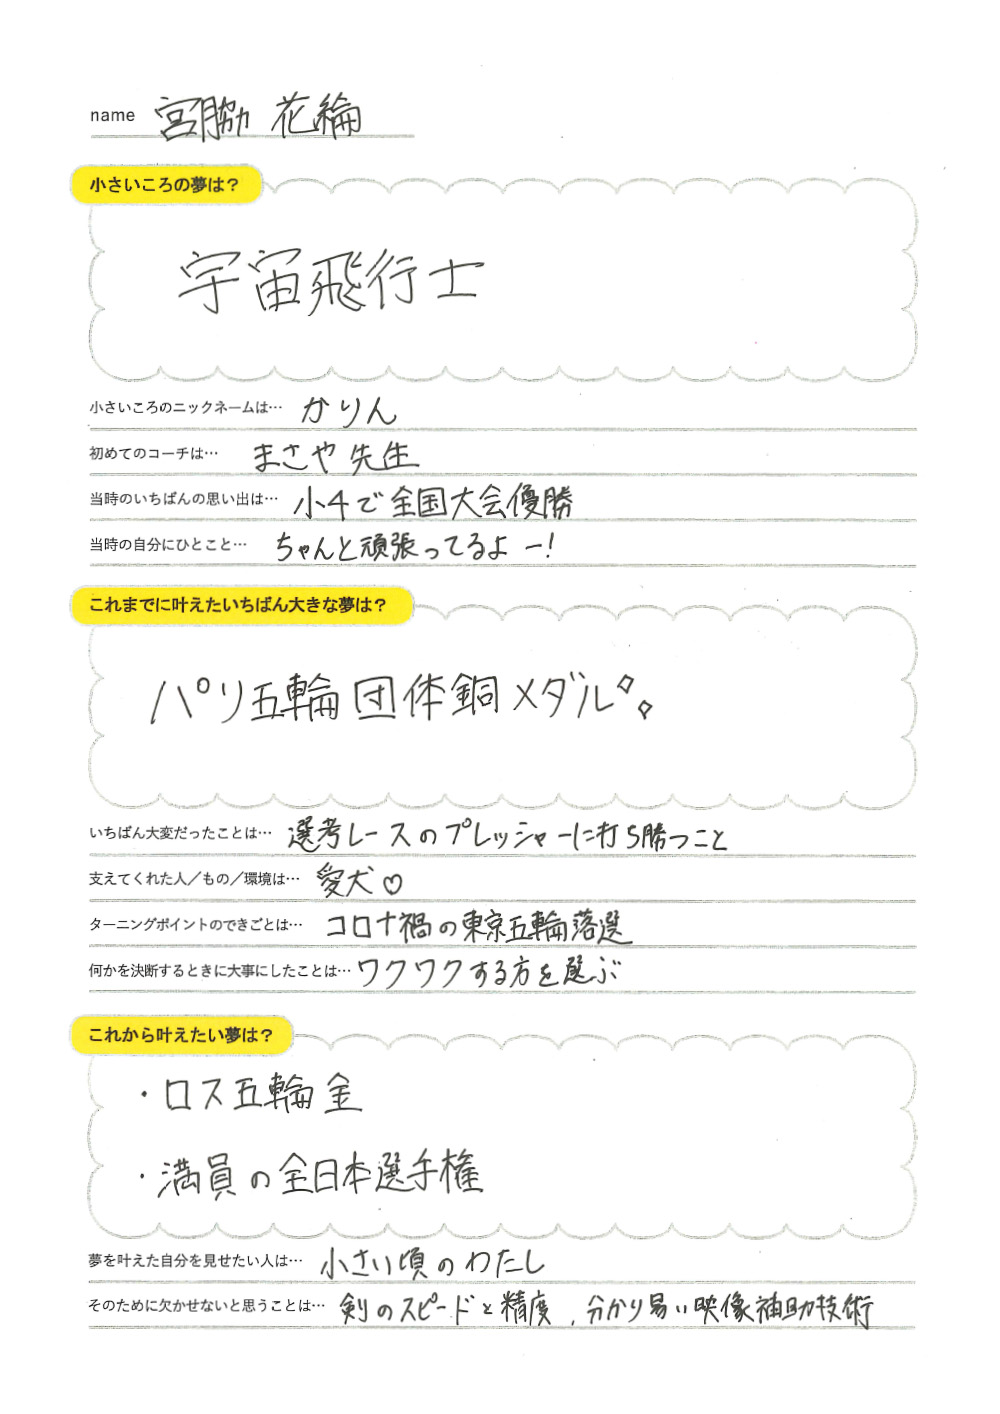 name 宮脇 花綸
小さいころの夢は？
宇宙飛行士
小さいころのニックネームは… かりん
初めてのコーチは… まさや先生
当時のいちばんの思い出は… 小4で全国大会優勝
当時の自分にひとこと… ちゃんと頑張ってるよー！
これまでに叶えたいちばん大きな夢は？
パリ五輪団体銅メダル
いちばん大変だったことは… 選考レースのプレッシャーに打ち勝つこと
支えてくれた人／もの／環境は… 愛犬♡
ターニングポイントのできごとは… コロナ禍の東京五輪落選
何かを決断するときに大事にしたことは… ワクワクする方を選ぶ
これから叶えたい夢は？
・ロス五輪金
・満員の全日本選手権
夢を叶えた自分を見せたい人は… 小さい頃のわたし
そのために欠かせないと思うことは… 剣のスピードと精度、分かり易い映像補助技術